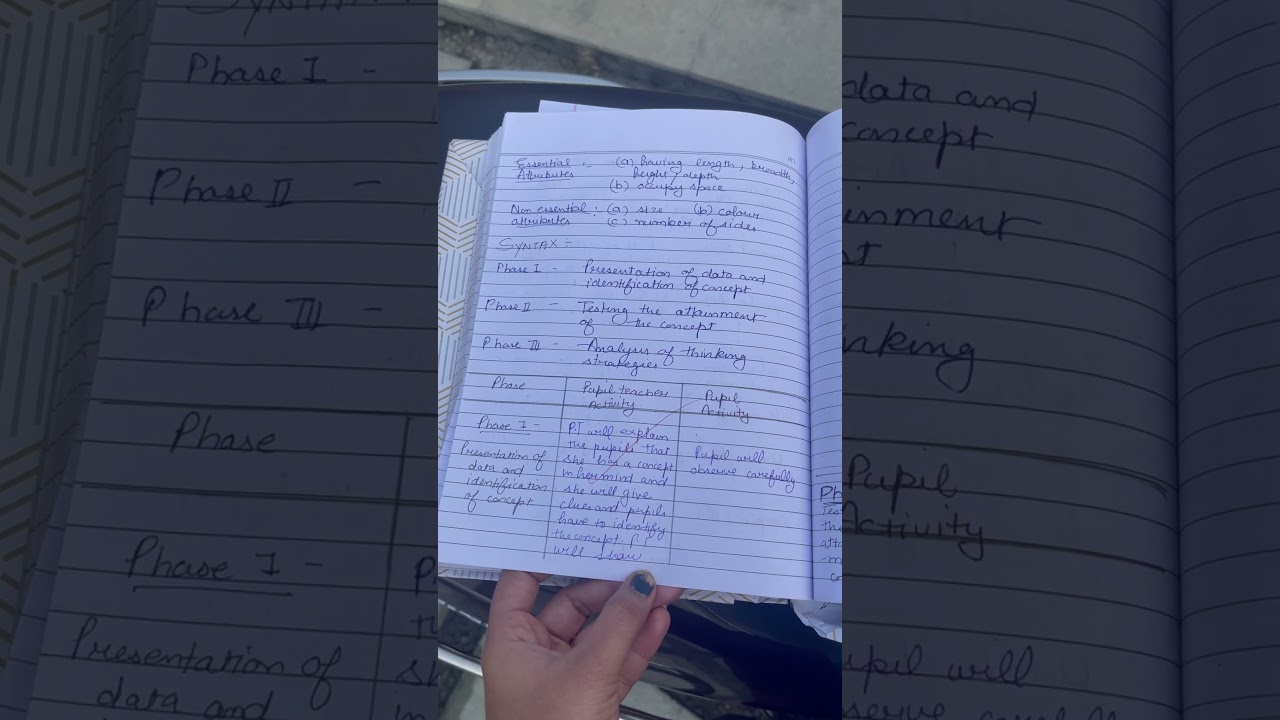 Essential :- (a) having length, breadth,
Attributes height / depth
(b) occupy space
Non essential : (a) size (b) colour
attributes (c) number of sides
SYNTAX :-
Phase I - Presentation of data and
identification of concept
Phase II - Testing the attainment
of the concept
Phase III - Analysis of thinking
strategies
Phase
Pupil teacher
Activity
Pupil
Activity
Phase I -
Presentation of
data and
identification
of concept
P.T will explain
the pupils that
she has a concept
in her mind and
she will give
clues and pupils
have to identify
the concept. P.T
will show
Pupil will
observe carefully